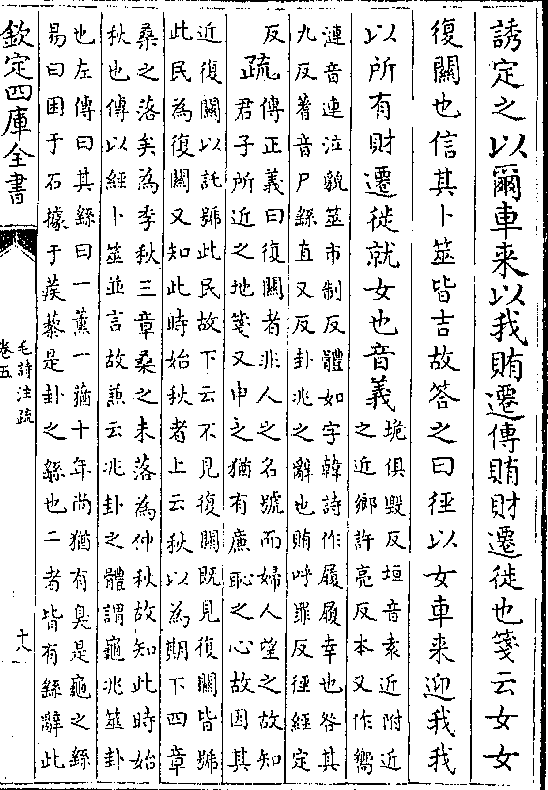 誘定之以爾車来以我賄遷傳賄財遷徙也箋云女女
復關也信其卜筮皆吉故答之曰徑以女車来迎我我
以所有財遷徙就女也音義
垝俱毀反垣音袁近附近
之近鄉許亮反本又作嚮
漣音連泣貌筮市制反體如字韓詩作履履幸也咎其
九反蓍音尸繇直又反卦兆之辭也賄呼罪反徑經定
反
疏
傳正義曰復關者非人之名號而婦人望之故知
君子所近之地箋又申之猶有廉恥之心故因其
近復關以託號此民故下云不見復關既見復關皆號
此民為復關又知此時始秋者上云秋以為期下四章
桑之落矣為季秋三章桑之未落為仲秋故知此時始
秋也傳以經卜筮並言故兼云兆卦之體謂龜兆筮卦
也左傳曰其繇曰一薰一蕕十年尚猶有臭是龜之繇
易曰困于石據于蒺藜是卦之繇也二者皆有繇辭此
欽定四庫全書
毛詩注疏
卷五
十八